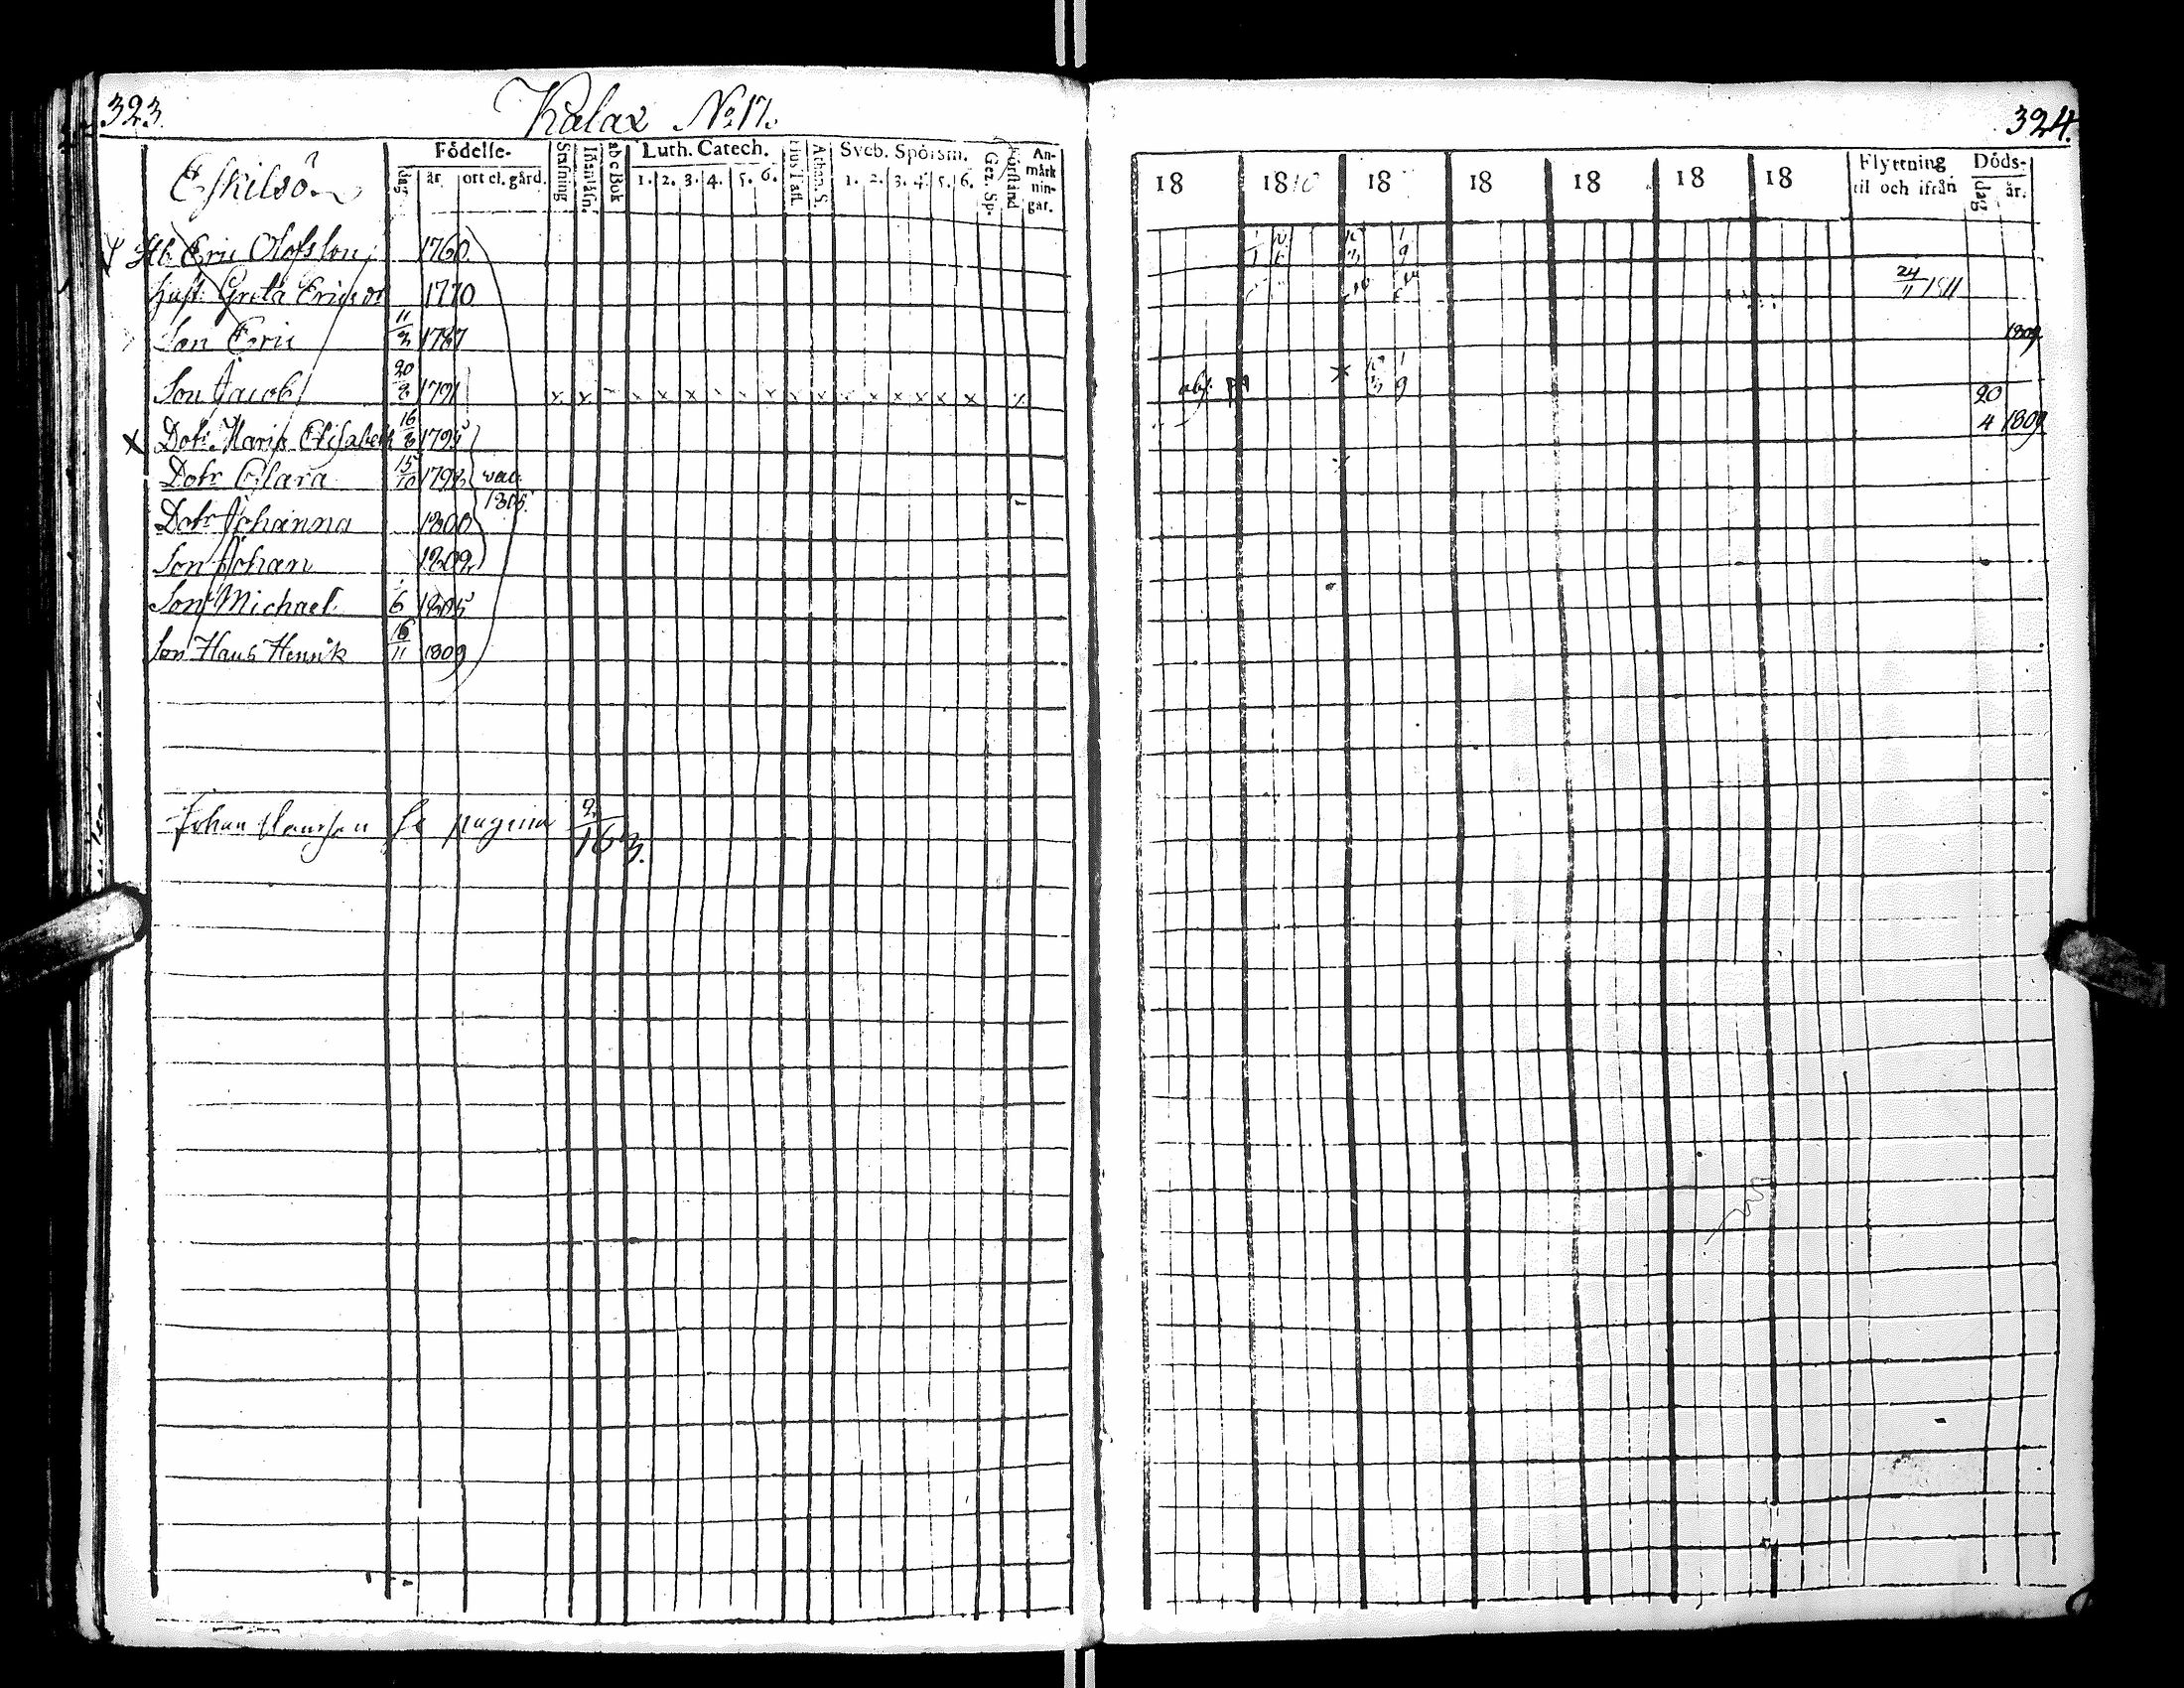 323.
Kalax No 17.
Eskilsö
Födelse-
dag
år
ort el. gård.
Stafning
Innanläsn.
abc Bok
Luth. Catech.
1. 2. 3. 4. 5. 6.
Hus Tafl.
Athan. S.
Sveb. Spörsm.
1. 2. 3. 4. 5. 6.
Gez. Sp.
Förstånd
An-
märk
nin-
gar.
Hb. Eric Olofsson 1760
Hust. Greta Ericsdr 1770
Son Eric 11/3 1787
Son Jacob 20/2 1791 x x x x x x x x x x x x x x x
x Dotr Maria Elisabeth 16/8 1795
Dotr Clara 15/10 1798 vac. 1805
Dotr Johanna 1800
Son Johan 1802
Son Michael 6 1805
Son Hans Henrik 16/11 1809
Johan se pagina 163.
324.
18 1810 18 18 18 18 18
Flyttning
til och ifrån
Döds-
dag
år.
24/11 1811
1809
abs.
20
4 1809